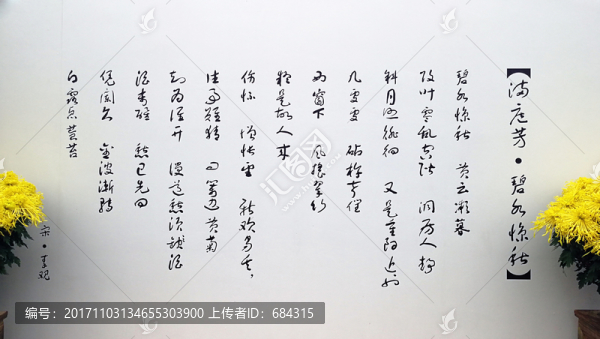 【满庭芳·碧水惊秋】
碧水惊秋 黄云凝暮
败叶零乱空阶 洞房人静
斜月照徘徊 又是重阳近也
几处处 砧杵声催
西窗下 风摇翠竹
疑是故人来
伤怀 增怅望 新欢易失
往事难猜 问篱边黄菊
知为谁开 谩道愁须殢酒
酒未醒 愁已先回
凭阑久 金波渐转
白露点苍苔
宋·秦观
编号：20171103134655303900 上传者ID：684315